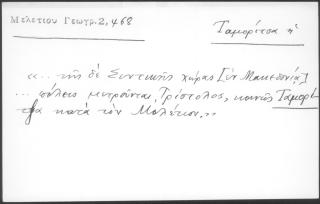 Μελετίου Γεωγρ. 2, 468
Ταμορίτσα ἡ
«.. τῆς δὲ Σιντικῆς χώρας [ἐν Μακεδονίᾳ]
... πόλεις μετροῦνται, Τρίστολος, κοινῶς Ταμορί-
τσα κατὰ τὸν Μελέτιον.»